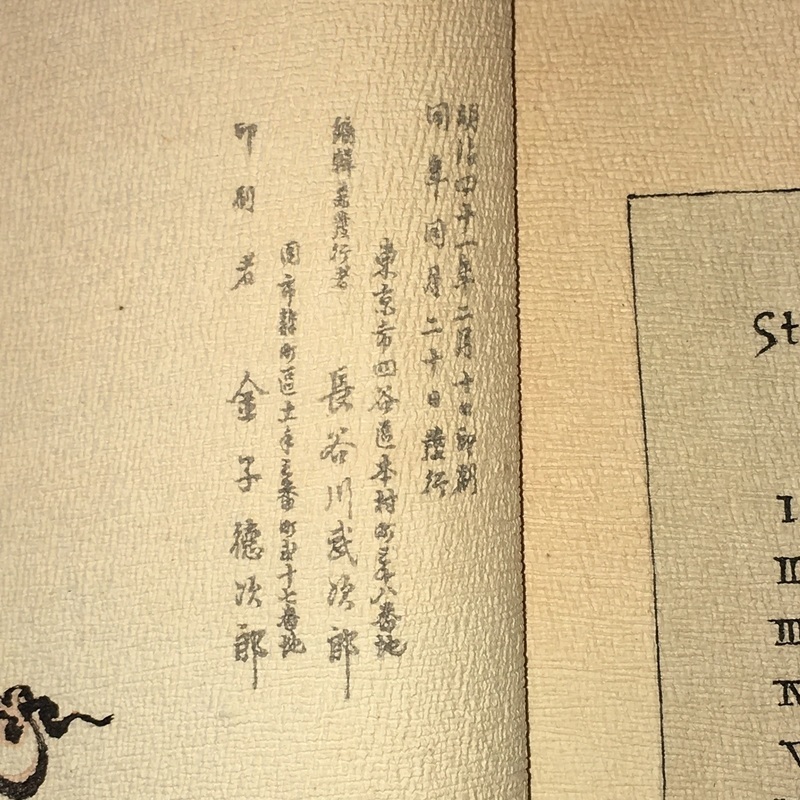 明治四十一年二月十日印刷
同年同月二十日發行
東京市四谷區本村町三十八番地
編輯兼發行者 長谷川武次郎
同市麹町區土手三番町三十七番地
印刷者 金子德次郎
St
I
II
III
IV
V